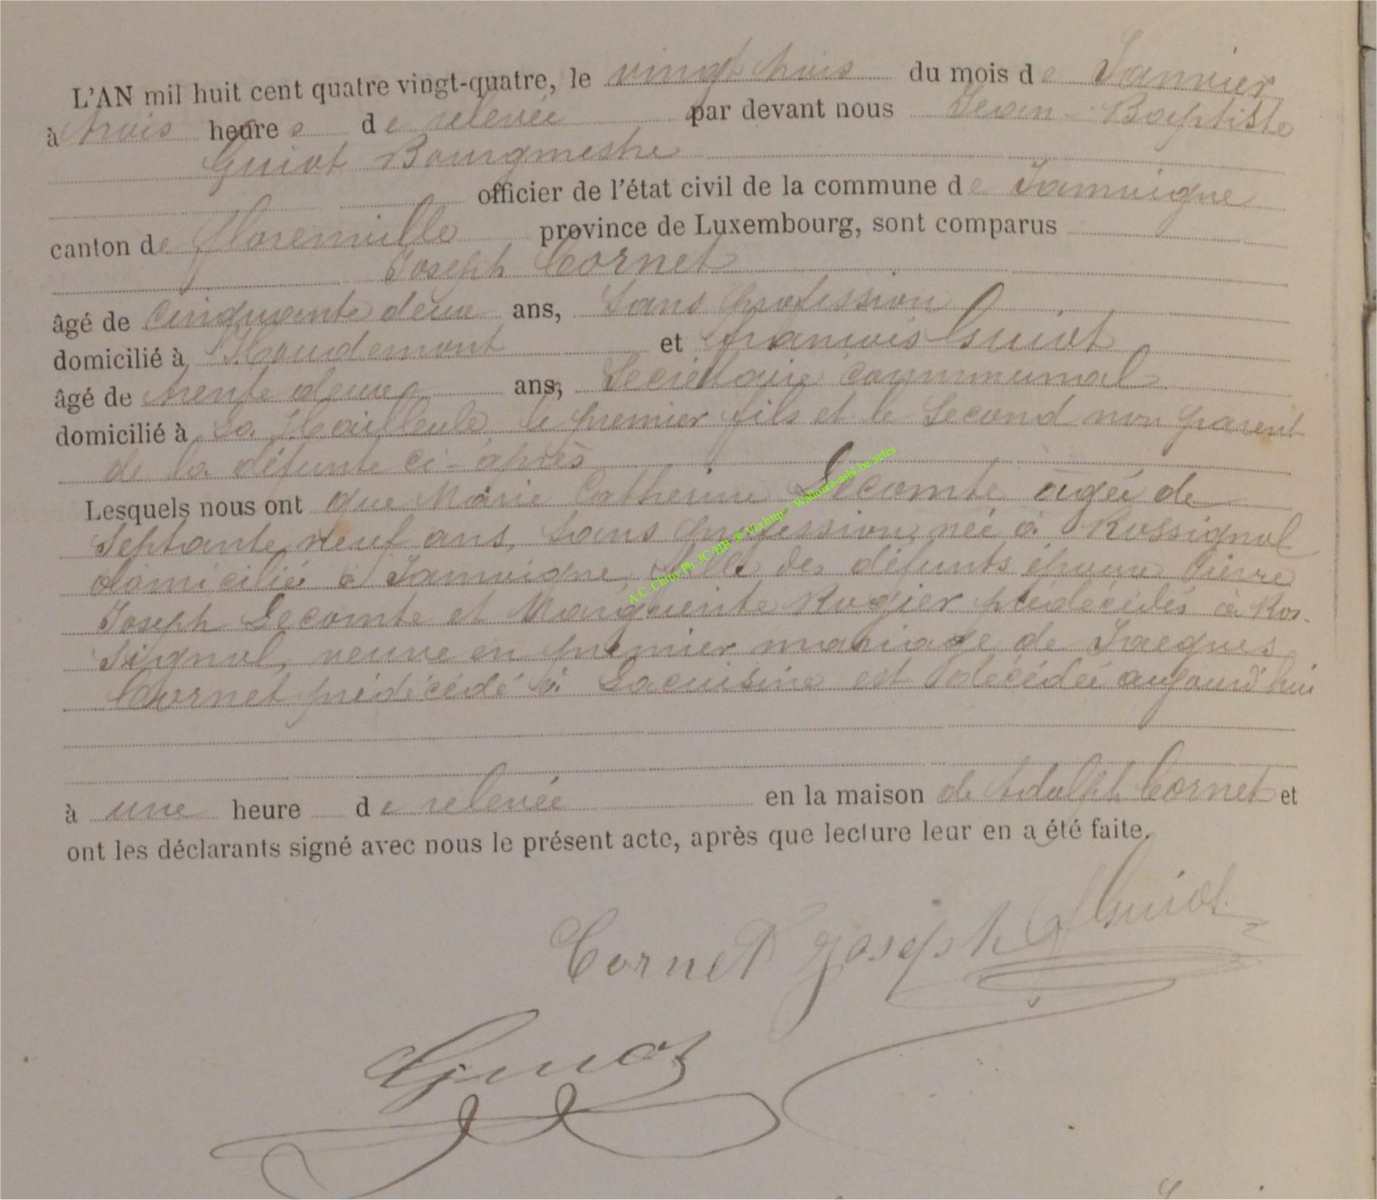 L'AN mil huit cent quatre vingt-quatre, le vingt trois du mois de Janvier
à trois heures de relevée par devant nous Jean-Baptiste
Guiot Bourgmestre
officier de l'état civil de la commune de Jamoigne
canton de Florenville province de Luxembourg, sont comparus
Joseph Cornet
âgé de cinquante deux ans, sans profession
domicilié à Houdemont et François Guiot
âgé de trente deux ans, Secrétaire communal
domicilié à La Hailleule le premier fils et le second non parent
de la défunte ci-après
Lesquels nous ont que Marie Catherine Lecomte agée de
Septante neuf ans, sans profession, née à Rossignol
domiciliée à Jamoigne, fille des défunts époux Pierre
Joseph Lecomte et Marguerite Rogier prédécédés à Ros-
signol, veuve en premier mariage de Jacques
Cornet prédécédé à Lacuisine est décédée aujourd'hui
à une heure de relevée en la maison de Adolph Cornet et
ont les déclarants signé avec nous le présent acte, après que lecture leur en a été faite.
Cornet Joseph Guiot
Guiot